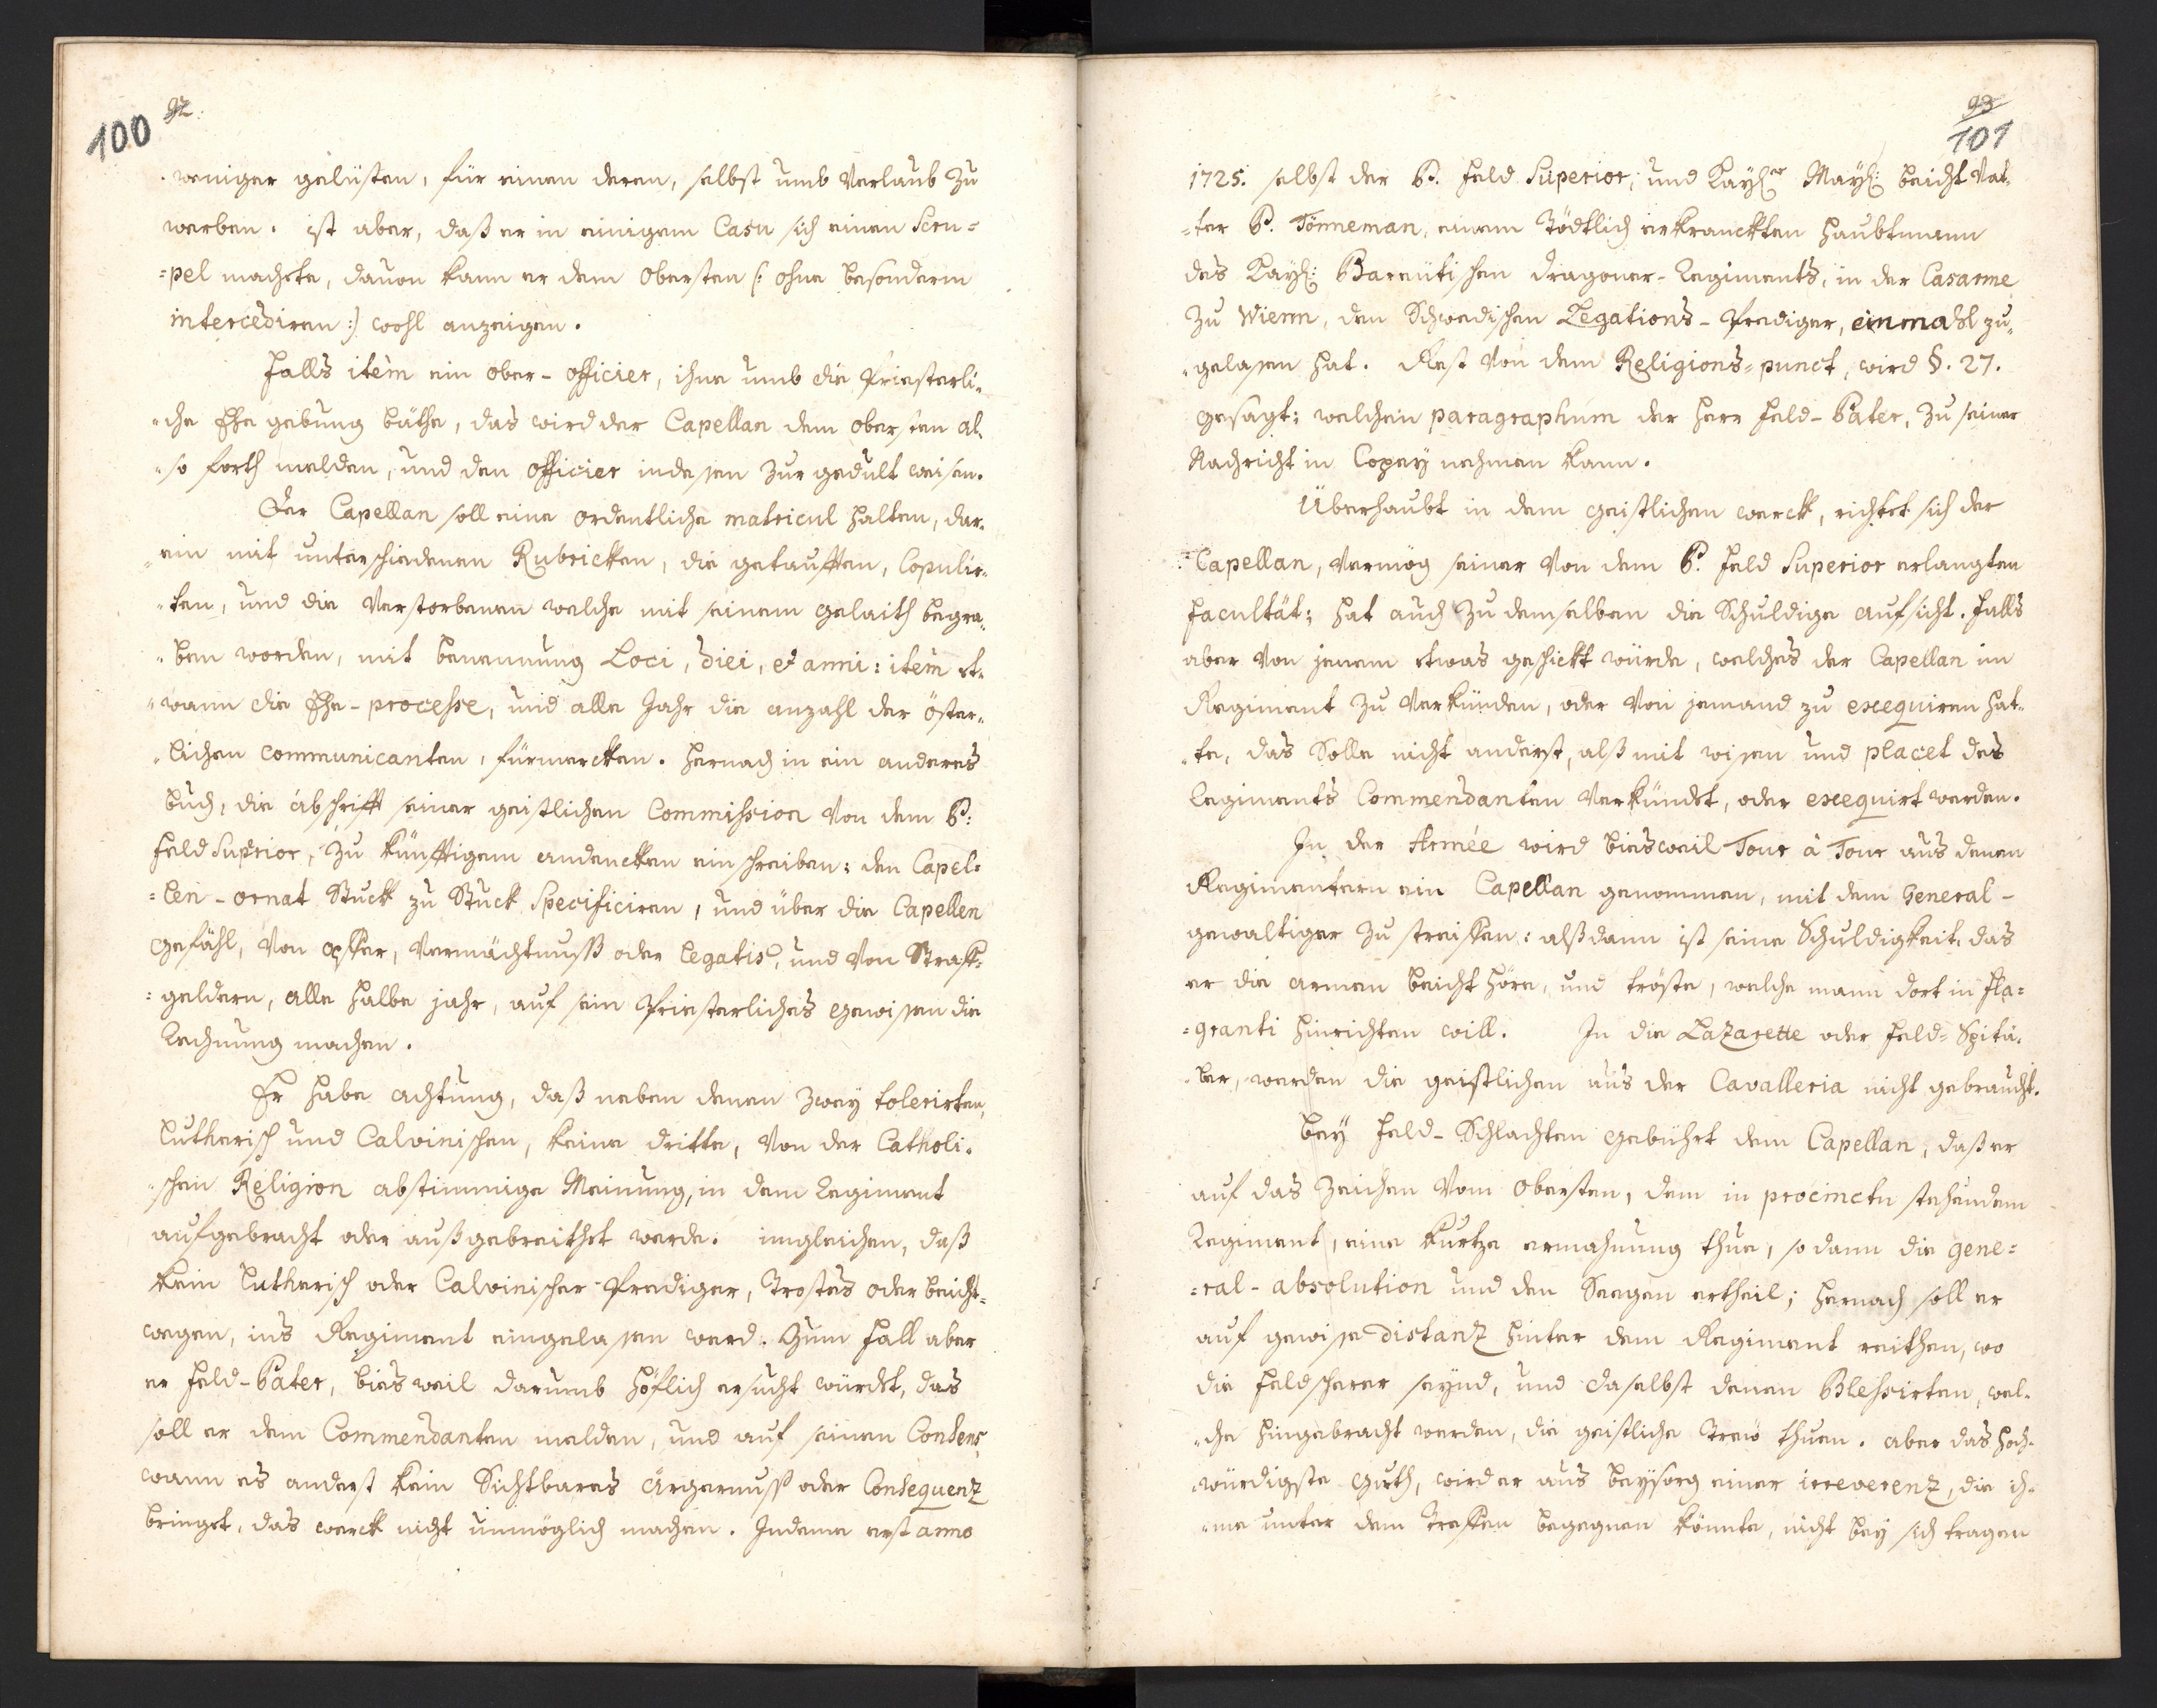 92.
100
weniger gelüsten, für einen deren, selbst umb Verlaub zu
werben. ist aber, daß er in einigem Casu sich einen Scru=
=pel machete, davon kann er dem Obersten (: ohne besonderm
intercediren :) wohl anzeigen.
Falls item ein Ober-Officier, ihne umb die Priesterli=
=che Ehe gebung bäthe, das wird der Capellan dem Obersten al=
=so forth melden, und den Officier indessen zur gedult weisen.
Der Capellan soll eine ordentliche matricul halten, dar=
=ein mit unterschiedenen Rubricken, die getaufften, Copulir=
=ten, und die Verstorbenen welche mit seinem gelaith begra=
=ben worden, mit benennung Loci, diei, et anni: item et=
=wann die Ehe-processe, und alle Jahr die anzahl der öster=
=lichen communicanten, fürmercken. Hernach in ein anderes
Buch, die abschrifft seiner geistlichen Commission von dem P:
Feld Suprior, zu künfftigem andencken einschreiben: den Capel=
=len-ornat Stuck zu Stuck Specificiren, und über die Capellen
gefähl, von opffer, Vermächtnuß oder legatis, und von Straff=
=geldern, alle halbe jahr, auf sein Priesterliches gewissen die
Rechnung machen.
Er habe achtung, daß neben denen zwey tolerirten,
Lutherisch und Calvinischen, keine dritte, von der Catholi=
=schen Religion abstimmige Meinung, in dem Regiment
aufgebracht oder außgebreithet werde. imgleichen, daß
kein Lutherisch oder Calvinischer Prediger, Trostes oder beicht=
wegen, ins Regiment eingelassen werd. Zum fall aber
er Feld-Pater, bisweil darumb höflich ersucht würdet, das
soll er dem Commendanten melden, und auf seinen Consens,
wann es anderst kein Sichtbares Ärgernuß oder Consequenz
bringet, das werck nicht unmöglich machen. Indeme erst anno
93
101
1725. selbst der P. Feld Superior, und Kayßer Mayß: beicht Vat=
=ter P. Tönneman, einem Tödtlich erkranckten Haubtmann
des Kayß: Bareütischen Dragoner-Regiments, in der Casarme
zu Wienn, den Schwedischen Legations-Prediger, einmahl zu=
=gelassen hat. Rest von dem Religions-punct, wird §. 27.
gesagt: welchen paragraphum der Herr Feld-Pater, zu seiner
Nachricht in Copey nehmen kann.
Überhaubt in dem geistlichen werck, richtet sich der
Capellan, vermög seiner von dem P. Feld Superior erlangten
facultät; hat auch zu demselben die Schuldige aufsicht. Falls
aber von jenem etwas geschickt würde, welches der Capellan im
Regiment zu Verkünden, oder von jemand zu exequiren hat=
=te, das Solle nicht anderst, alß mit wissen und placet des
Regiments Commendanten verkündet, oder exequirt werden.
In der Armée wird bisweil Tour à Tour aus denen
Regimentern ein Capellan genommen, mit dem General-
gewaltiger zu streiffen: alßdann ist seine Schuldigkeit, das
er die armen beicht höre, und tröste, welche mann dort in fla=
=granti hinrichten will. In die Lazarette oder Feld-Spitä=
=ler, werden die geistlichen aus der Cavalleria nicht gebraucht.
Bey Feld-Schlachten gebührt dem Capellan, daß er
auf das Zeichen vom Obersten, dem in procinctu stehendem
Regiment, eine kurtze ermahnung thue, so dann die gene=
=ral-absolution und den Seegen ertheil; hernach soll er
auf gewisse distanz hinter dem Regiment reithen, wo
die Feldscherer seynd, und daselbst denen Blessirten, wel=
=che hingebracht werden, die geistliche Treü thuen. aber das Hoch=
=würdigste Guth, wird er aus beysorg einer irreverenz, die ih=
=me unter dem Treffen begegnen könnte, nicht bey sich tragen